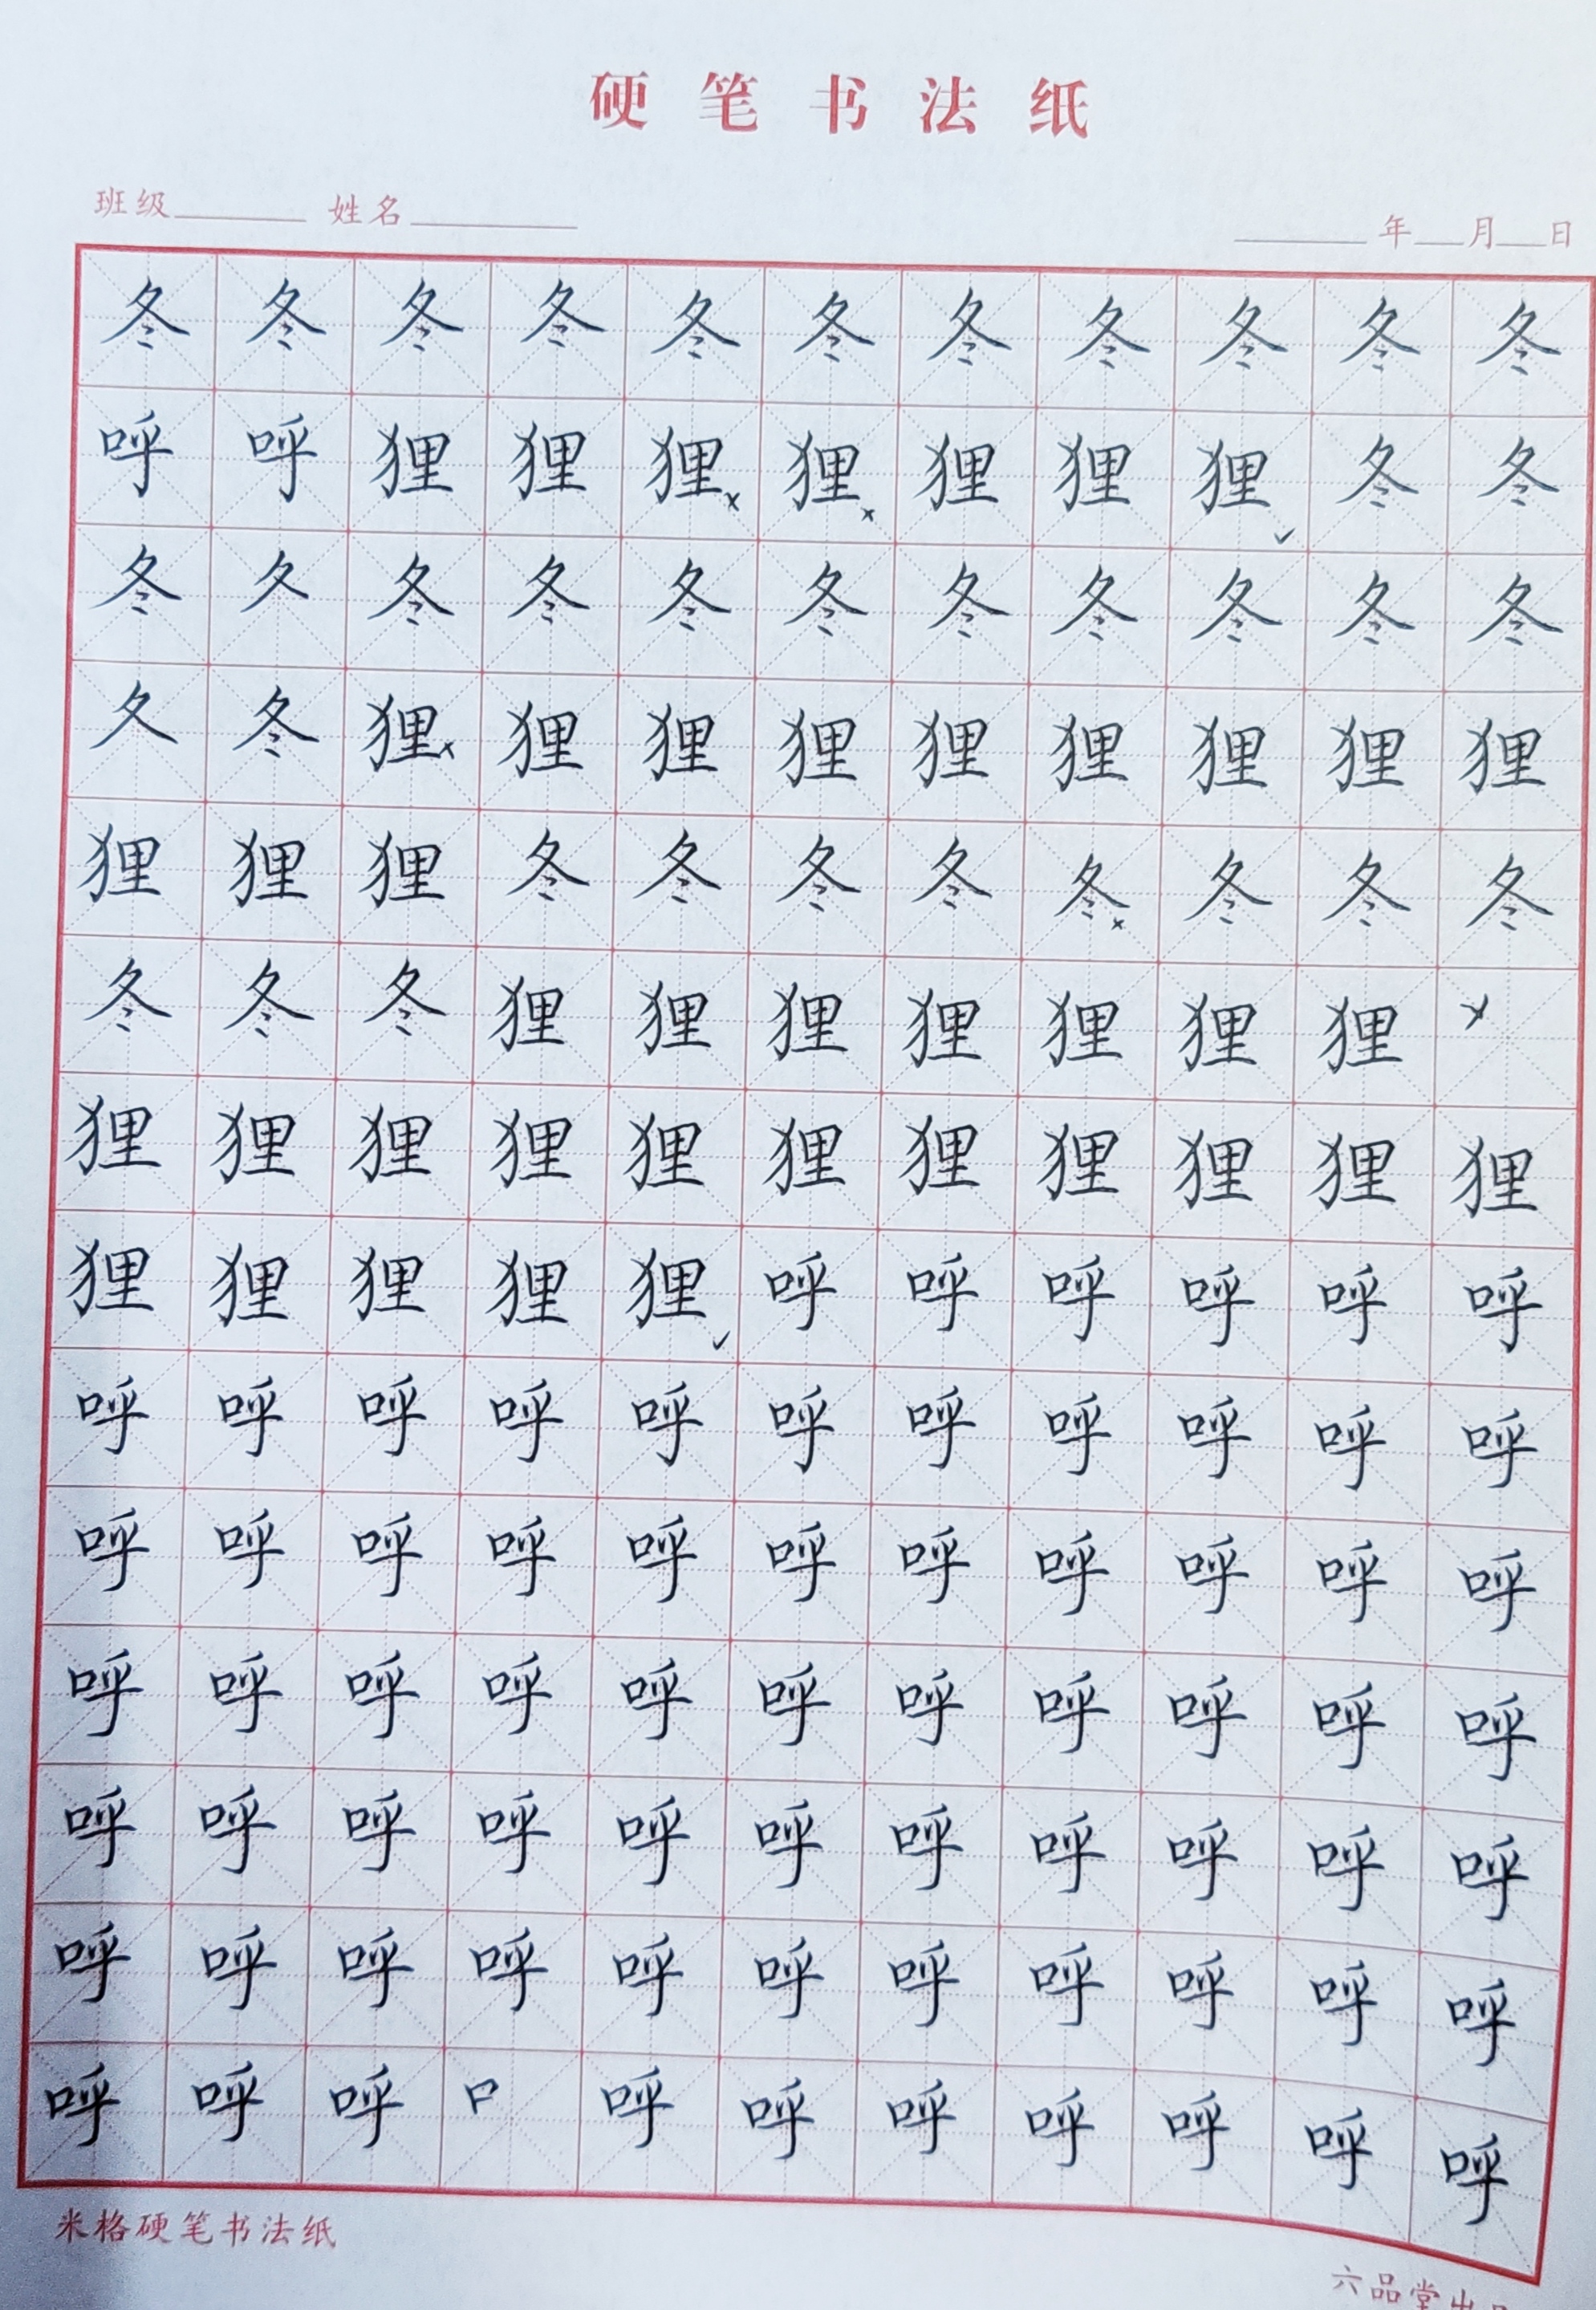 硬笔书法纸
班级 姓名 年 月 日
冬冬冬冬冬冬冬冬冬冬冬
呼呼狸狸狸狸狸狸狸冬冬
冬夂冬冬冬冬冬冬冬冬冬
夂冬狸狸狸狸狸狸狸狸狸
狸狸狸冬冬冬冬冬冬冬冬
冬冬冬狸狸狸狸狸狸狸
狸狸狸狸狸狸狸狸狸狸狸
狸狸狸狸狸呼呼呼呼呼呼
呼呼呼呼呼呼呼呼呼呼呼
呼呼呼呼呼呼呼呼呼呼呼
呼呼呼呼呼呼呼呼呼呼呼
呼呼呼呼呼呼呼呼呼呼呼
呼呼呼呼呼呼呼呼呼呼呼
呼呼呼口呼呼呼呼呼呼呼
米格硬笔书法纸
六品堂出